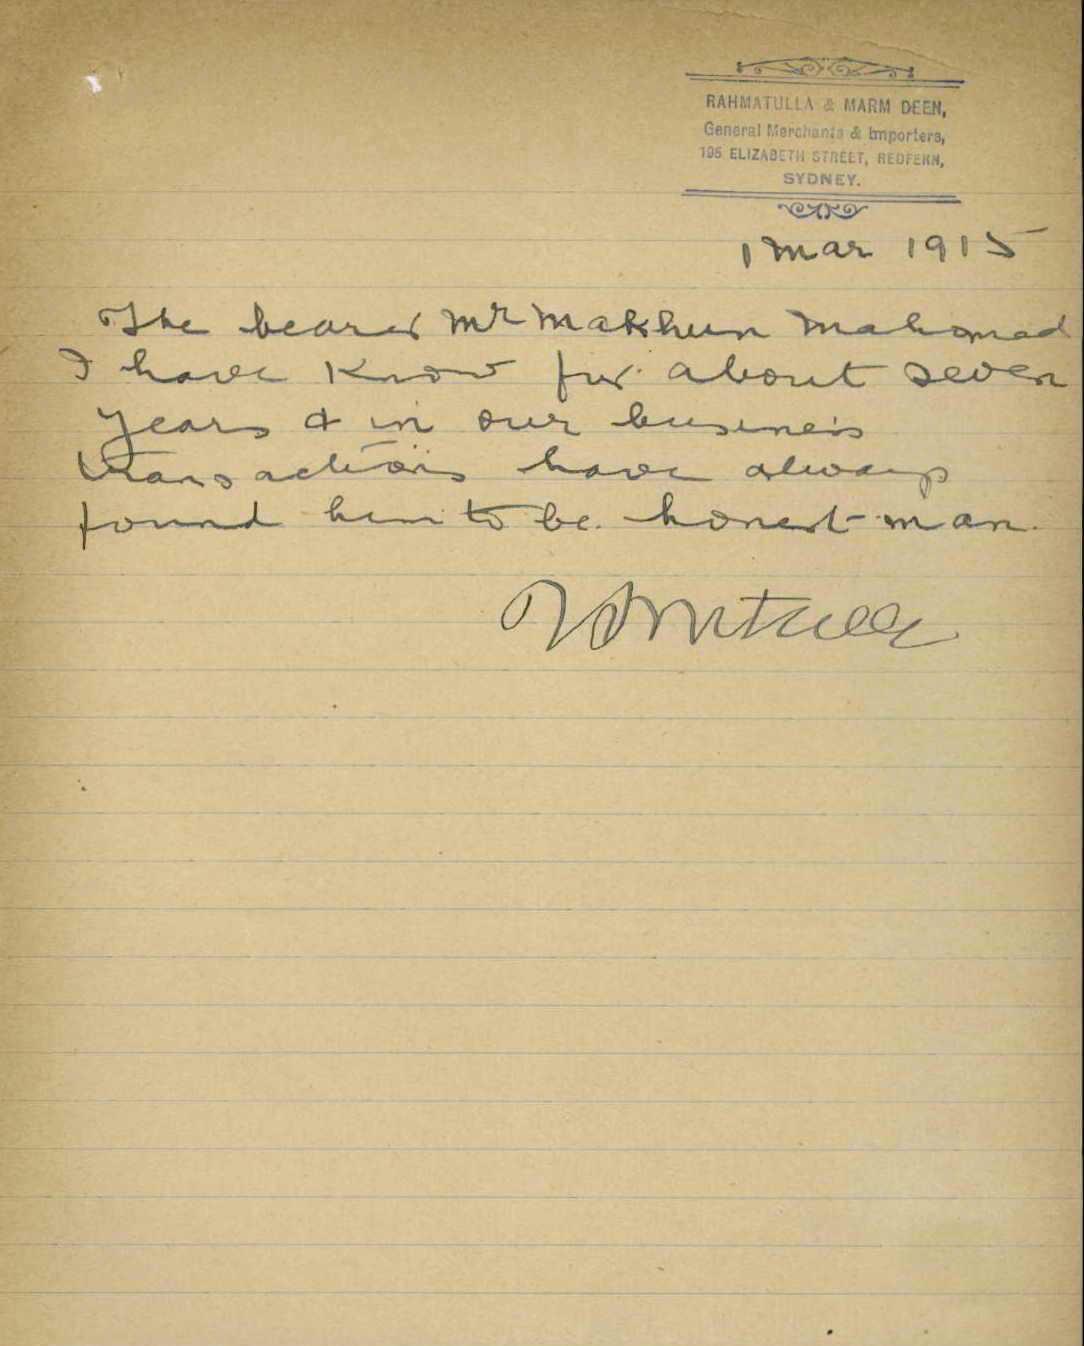 RAHMATULLA & MARM DEEN,
General Merchants & Importers,
195 ELIZABETH STREET, REDFERN,
SYDNEY.
1 Mar 1915
The bearer Mr Makhun Mahomad
I have Know for about seven
years & in our business
transactions have always
found him to be honest man.